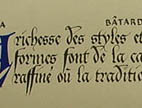 A BÂTARD
richesse des styles et
formes font de la ca
raffiné où la traditio